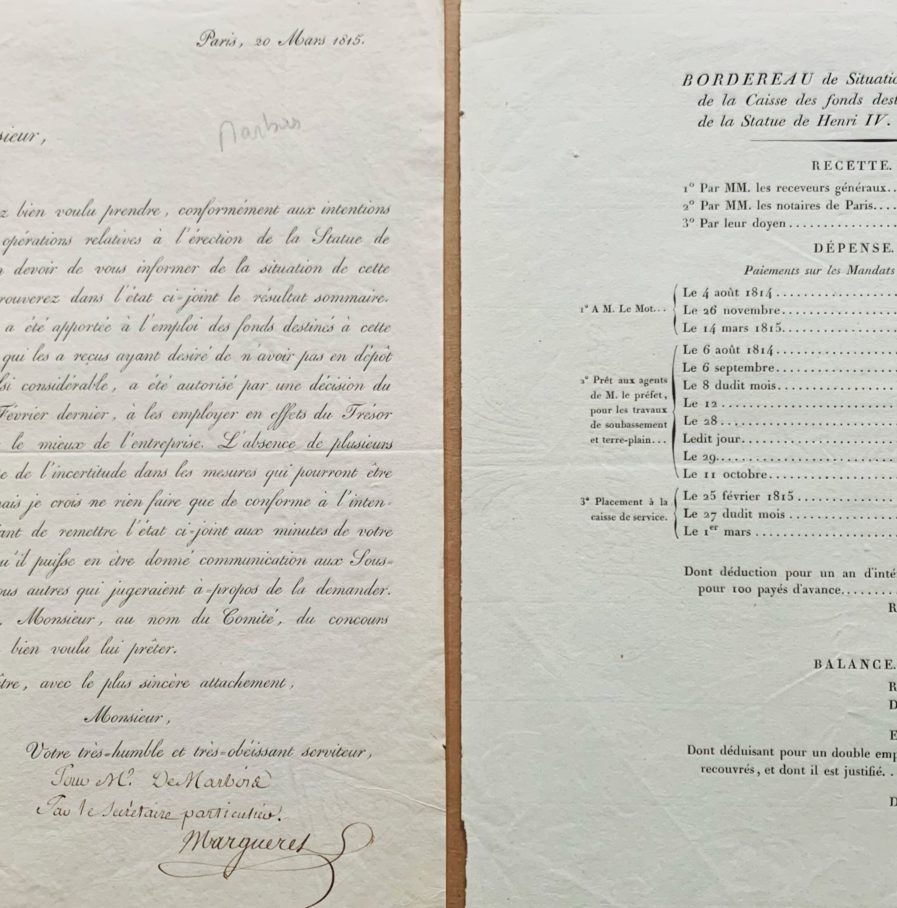 Paris, 20 Mars 1815.
sieur,
z bien voulu prendre, conformément aux intentions
opérations relatives à l'érection de la Statue de
devoir de vous informer de la situation de cette
rouverez dans l'état ci-joint le résultat sommaire.
a été apportée à l'emploi des fonds destinés à cette
qui les a reçus ayant desiré de n'avoir pas en dépôt
si considérable, a été autorisé par une décision du
Février dernier, à les employer en effets du Trésor
le mieux de l'entreprise. L'absence de plusieurs
se de l'incertitude dans les mesures qui pourront être
mais je crois ne rien faire que de conforme à l'inten-
ant de remettre l'état ci-joint aux minutes de votre
u'il puisse en être donné communication aux Sous-
ous autres qui jugeraient à-propos de la demander.
, Monsieur, au nom du Comité, du concours
bien voulu lui prêter.
être, avec le plus sincère attachement,
Monsieur,
Votre très-humble et très-obéissant serviteur,
Pour Mr. De Marbois
Par le Secrétaire particulier.
Margueret
BORDEREAU de Situatio
de la Caisse des fonds dest
de la Statue de Henri IV.
RECETTE.
1º Par MM. les receveurs généraux..
2º Par MM. les notaires de Paris....
3º Par leur doyen................
DÉPENSE.
Paiements sur les Mandats
1º A M. Le Mot...
Le 4 août 1814..................
Le 26 novembre..................
Le 14 mars 1815.................
2º Prêt aux agents
de M. le préfet,
pour les travaux
de soubassement
et terre-plain...
Le 6 août 1814..................
Le 6 septembre..................
Le 8 dudit mois.................
Le 12...........................
Le 28...........................
Ledit jour......................
Le 29...........................
Le 11 octobre...................
3º Placement à la
caisse de service.
Le 25 février 1815..............
Le 27 dudit mois................
Le 1er mars.....................
Dont déduction pour un an d'inté
pour 100 payés d'avance........
R
BALANCE.
R
D
E
Dont déduisant pour un double emp
recouvrés, et dont il est justifié..
D